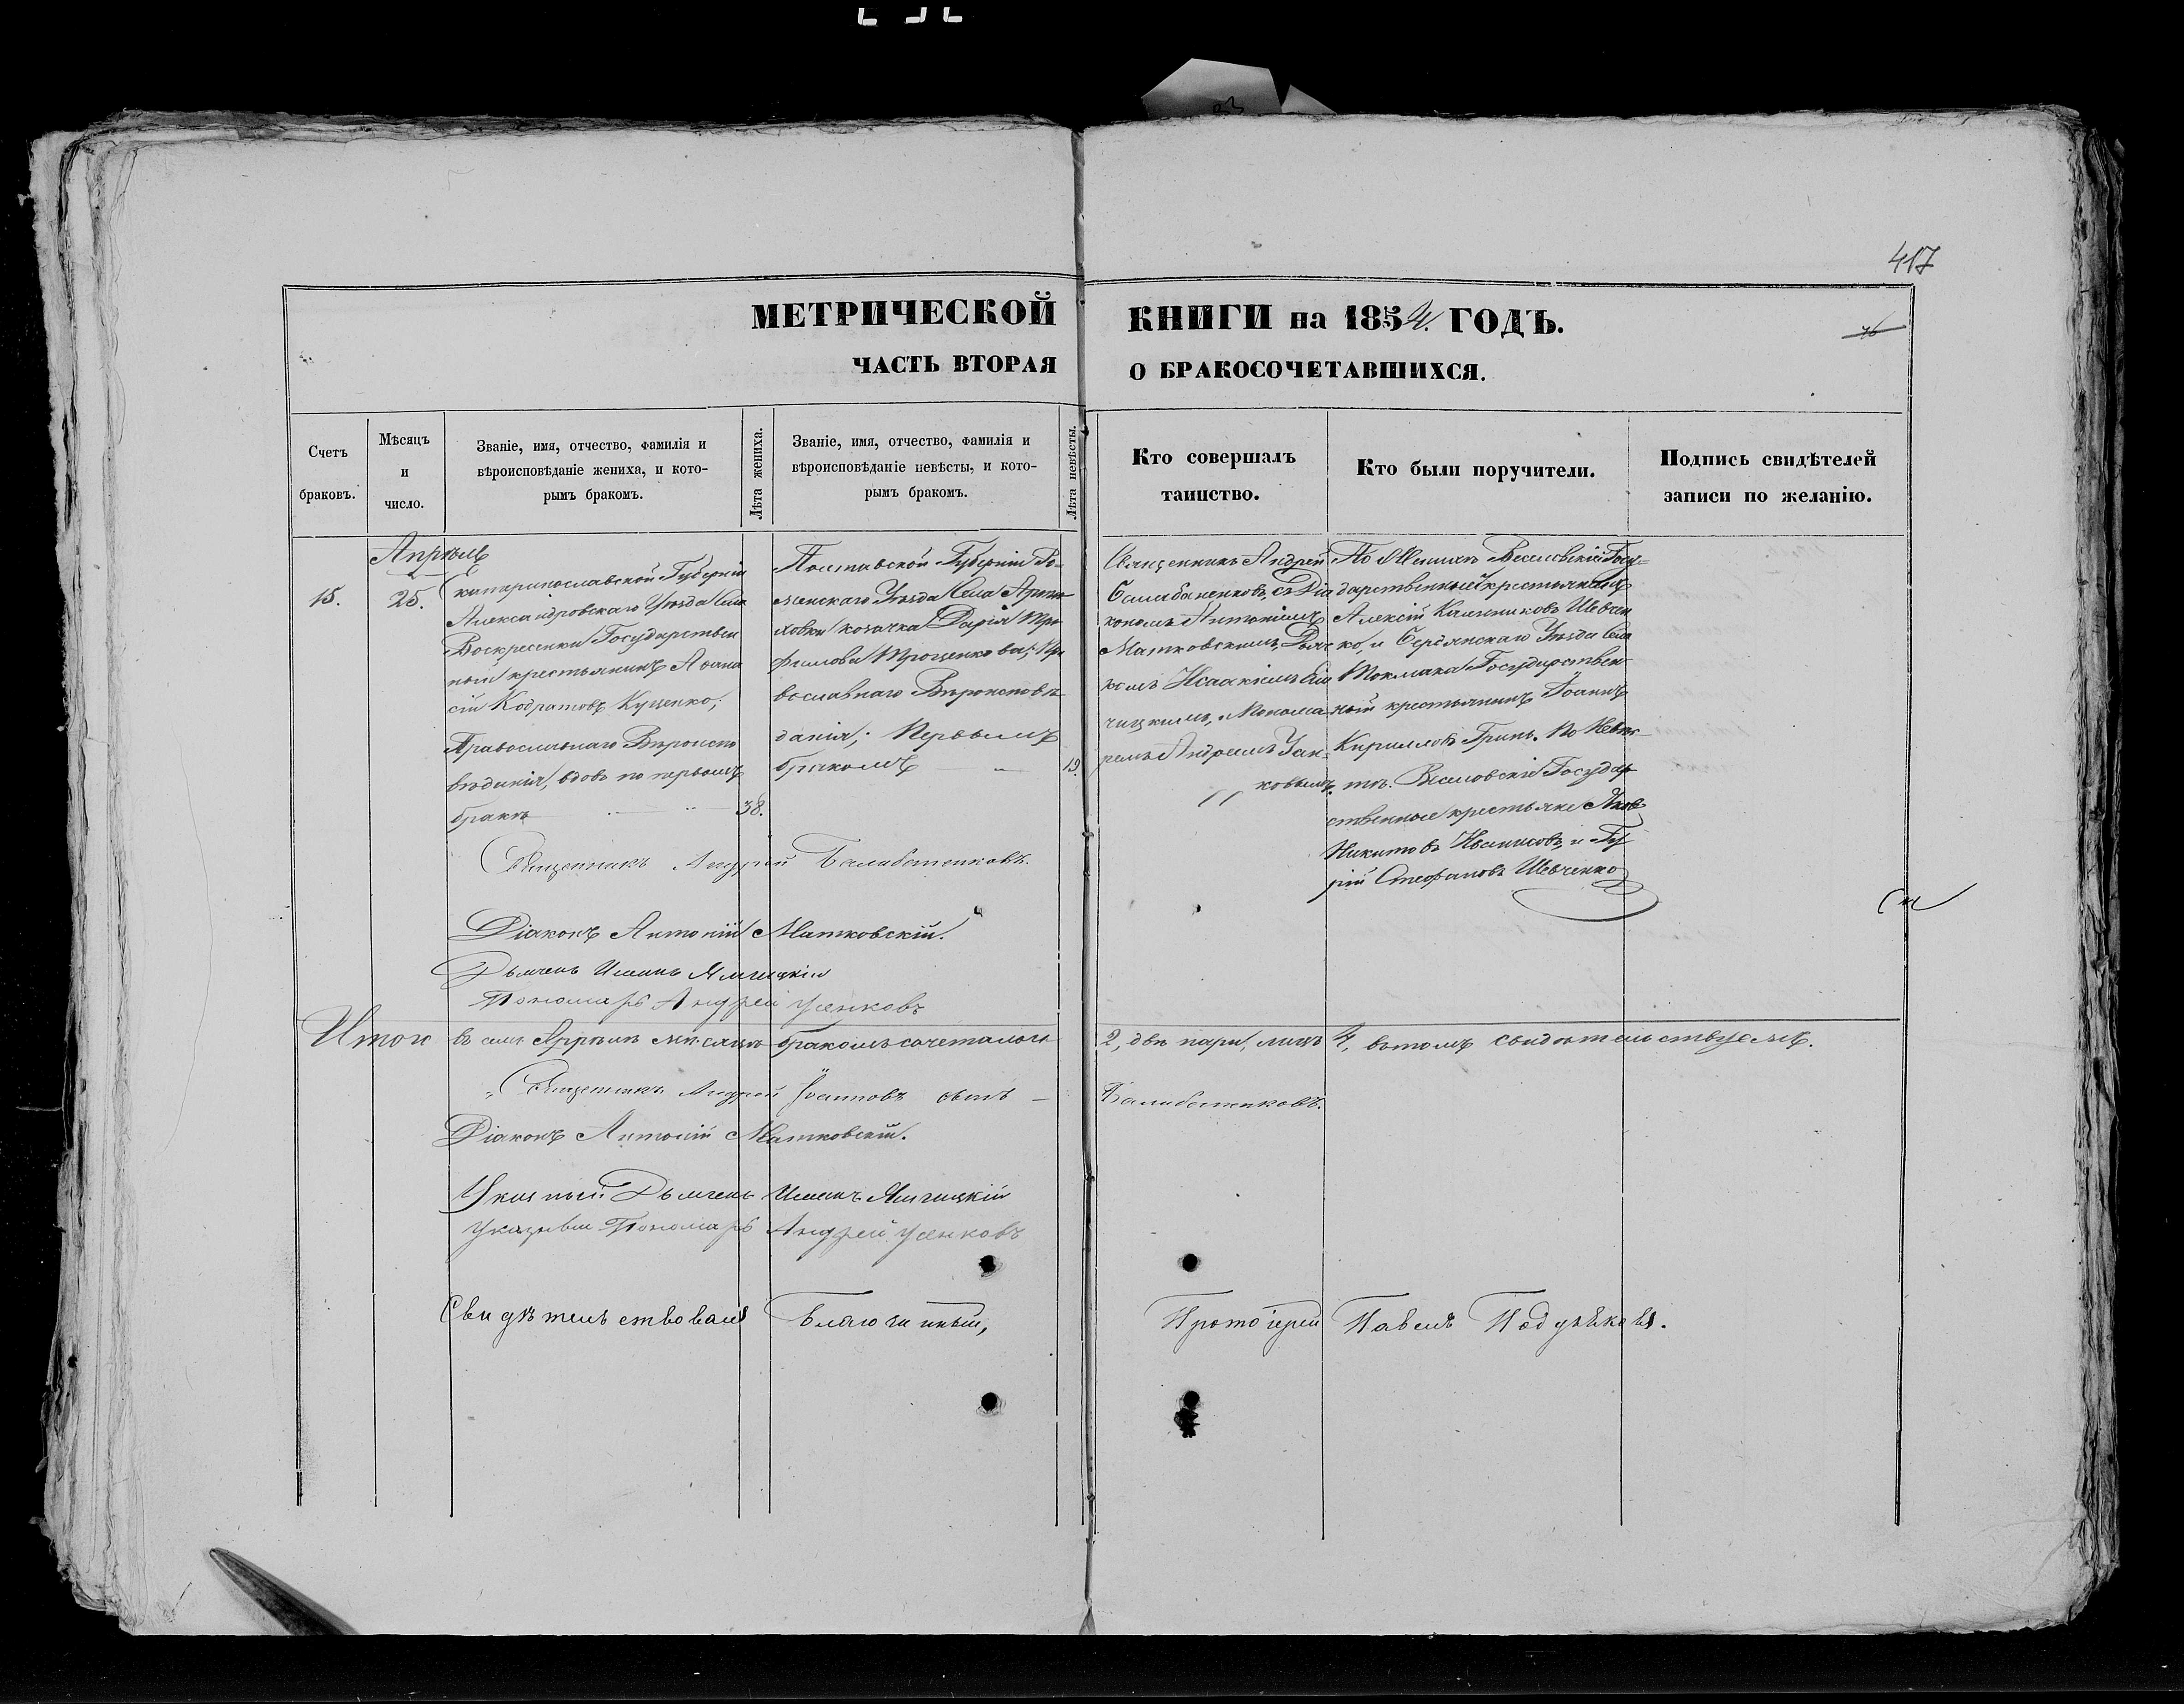 417
МЕТРИЧЕСКОЙ КНИГИ на 1854. ГОДЪ.
ЧАСТЬ ВТОРАЯ О БРАКОСОЧЕТАВШИХСЯ.
Счетъ
браковъ.
Мѣсяцъ
и
число.
Званіе, имя, отчество, фамилія и
вѣроисповѣданіе жениха, и кото-
рымъ бракомъ.
Лѣта жениха.
Званіе, имя, отчество, фамилія и
вѣроисповѣданіе невѣсты, и кото-
рымъ бракомъ.
Лѣта невѣсты.
Кто совершалъ
таинство.
Кто были поручители.
Подпись свидѣтелей
записи по желанію.
15.
Апрѣль
25.
Екатеринославской Губерніи
Александровскаго Уѣзда Села
Воскресенки Государствен
ный крестьянинъ Афана
сій Кодратовъ Куценко;
Православнаго Вѣроиспо
вѣданія, вдовъ по первомъ
бракѣ 38.
Полтавской Губерніи Ро-
менскаго Уѣзда Села
ховки козачка Дарія Тро
фимова Троценкова; Пра
вославнаго Вѣроисповѣ
данія; Первымъ
бракомъ 19.
Священникъ Андрей
Балабаненковъ, съ Діа
кономъ Антоніемъ
Матковскимъ, Дьяч
комъ
чицкимъ, и Понома
ремъ Андреемъ Усен-
ковымъ.
По Женихѣ Веселовскій Госу-
дарственный крестьянинъ
Алексій Калениковъ Шевчен
ко, и Бердянскаго Уѣзда Села
Токмака Государствен
ный крестьянинъ Іоаннъ
Кирилловъ Гринь. По Невѣс
тѣ. Веселовскіе Государ
ственные крестьяне Яковъ
Никитовъ и
рій Стефановъ Шевченко
Священникъ Андрей Балабаненковъ.
Діаконъ Антоній Матковскій.
Дьячекъ Ямчицкій
Пономарь Андрей Усенковъ
Итого въ семъ Апрѣлѣ мѣсяцѣ бракомъ сочеталось 2, двѣ пары, лицъ 4, въ томъ свидѣтельствуемъ.
Священникъ Андрей Іоанновъ сынъ – Балабаненковъ.
Діаконъ Антоній Матковскій.
Указный Дьячекъ Ямчицкій
Указный Пономарь Андрей Усенковъ
Свидѣтельствовалъ Благочинный, Протоіерей Павелъ Подуньковъ.